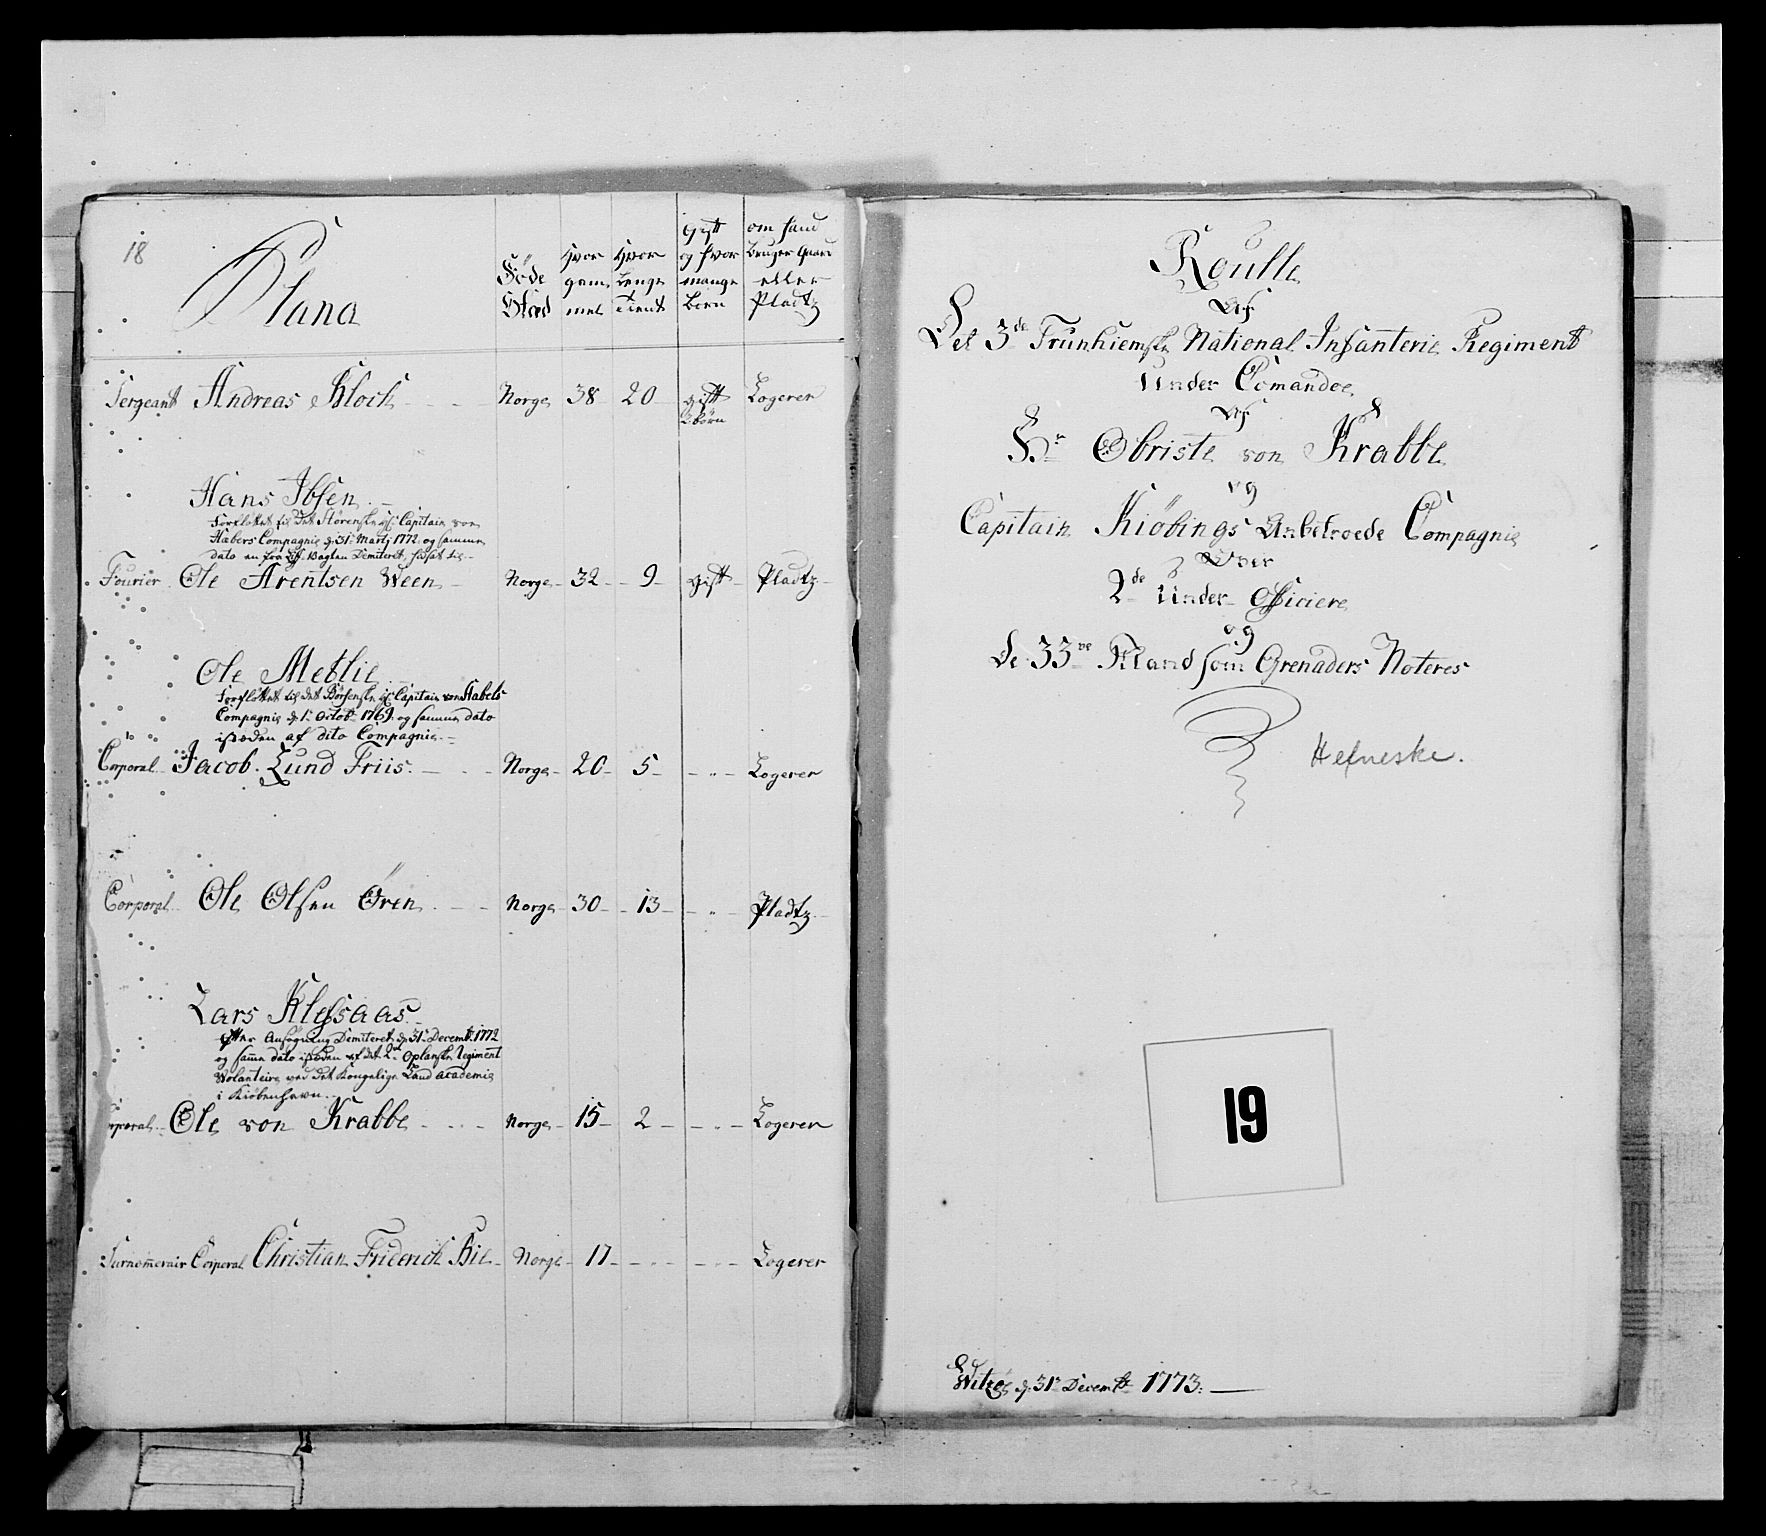 18
Plana
Föde Stæd
Hvor gam- mel
Hvor Lenge Tient
Gift og hvor mange Børn
om hand Bruger Gaard eller Pladtz
Sergeant Andreas Kloch Norge 38 20 gift 2 børn Logerer
Hans Ibsen
Forflöttet til det Störenske Capitain von
Habers Compagnie d: 31 Martj 1772 og samme
dato en fra Demiteret, hidsat til
Fourier Ole Arentsen Ween Norge 32 9 gift Pladtz
Ole Metlie
Forflöttet til det Börsenske Capitain von Stabels
Compagnie d: 1 Octobr 1769 og samme dato
isteden af dito Compagnie
Corporal Jacob Lund Friis Norge 20 5 Logerer
Corporal Ole Olsen Ören Norge 30 13 Pladtz
Lars Klefsaas
efter Ansögning Demiteret d: 31 Decembr 1772
og samme dato isteden af det 2 Oplanske Regiment
Volanteire ved det Kongelige Land Academie
i Kiöbenhavn
rporal Ole von Krabbe Norge 15 2 Logerer
Surnomerair Corporal Christian Friderich Bie Norge 17 Logerer
Roulle
Af
Det 3de Trunhiemske National Infanterie Regiment
Under Comandoe
Af
Hr Obriste von Krabbe
og
Capitain Kiöbings Anbetroede Compagnie
Over
2de Under Officiere
og
De 33ve Mand som Grenaders Noteres
Hefneske.
19
d: 31 Decembr 1773